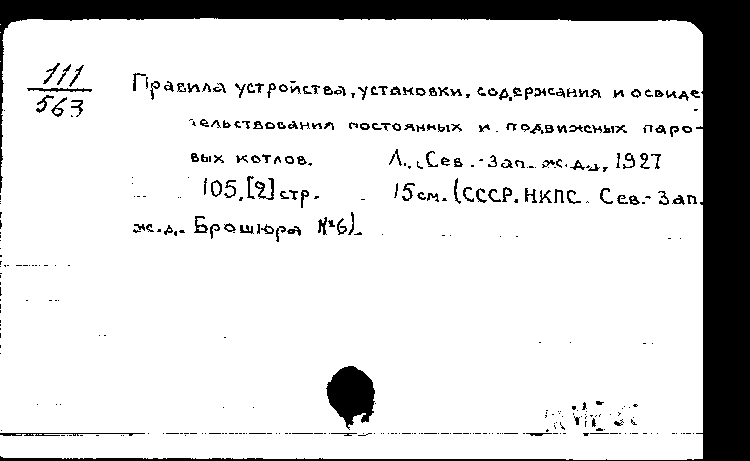 111
563
Правила устройства, установки, содержания и освиде-
тельствования постоянных и подвижных паро-
вых котлов. Л., Сев.-Зап. ж.д., 1927
105, [2] стр. 15 см. (СССР. НКПС. Сев.-Зап.
ж.д. Брошюра №6).